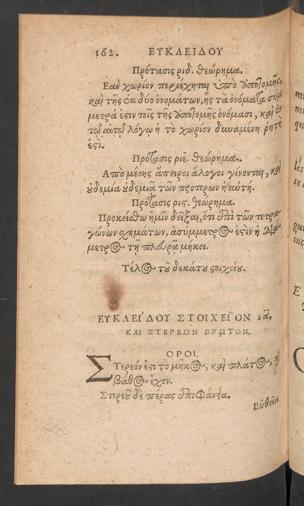 162. ΕΥΚΛΕΙΔΟΥ
Πρότασις ριδ. θεώρημα.
Εὰν χωρίον περιέχηται ὑπὸ ἀποτομῆς,
καὶ τῆς ἐκ δύο ὀνομάτων, ἧς τὰ ὀνόματα σύμ
μετρά ἐστιν τοῖς τῆς ἀποτομῆς ὀνόμασι, καὶ ἐν
τῷ αὐτῷ λόγῳ ἡ τὸ χωρίον δυναμένη ῥητή
ἐστι.
Πρότασις ριε. θεώρημα.
Απὸ μέσης ἄπειροι ἄλογοι γίνονται, καὶ
οὐδεμία οὐδεμιᾷ τῶν πρότερον ἡ αὐτή.
Πρότασις ρις. θεώρημα.
Προκείσθω ἡμῖν δεῖξαι, ὅτι ἐπὶ τῶν τετρα
γώνων σχημάτων, ἀσύμμετρός ἐστιν ἡ διά
μετρος τῇ πλευρᾷ μήκει.
Τέλος τοῦ δεκάτου στοιχείου.
ΕΥΚΛΕΙΔΟΥ ΣΤΟΙΧΕΙΟΝ ια,
ΚΑΙ ΣΤΕΡΕΩΝ ΠΡΩΤΟΝ.
ΟΡΟΙ.
Στερεόν ἐστι τὸ μῆκος, καὶ πλάτος, καὶ
βάθος ἔχον.
Στερεοῦ δὲ πέρας ἐπιφάνεια.
Εὐθεῖα